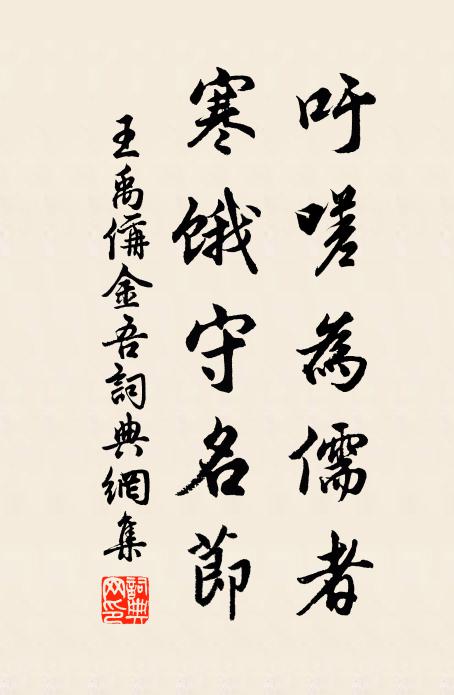 吁嗟為儒者
寒餓守名節
王禹偁金吾詞典網集
詞典網印